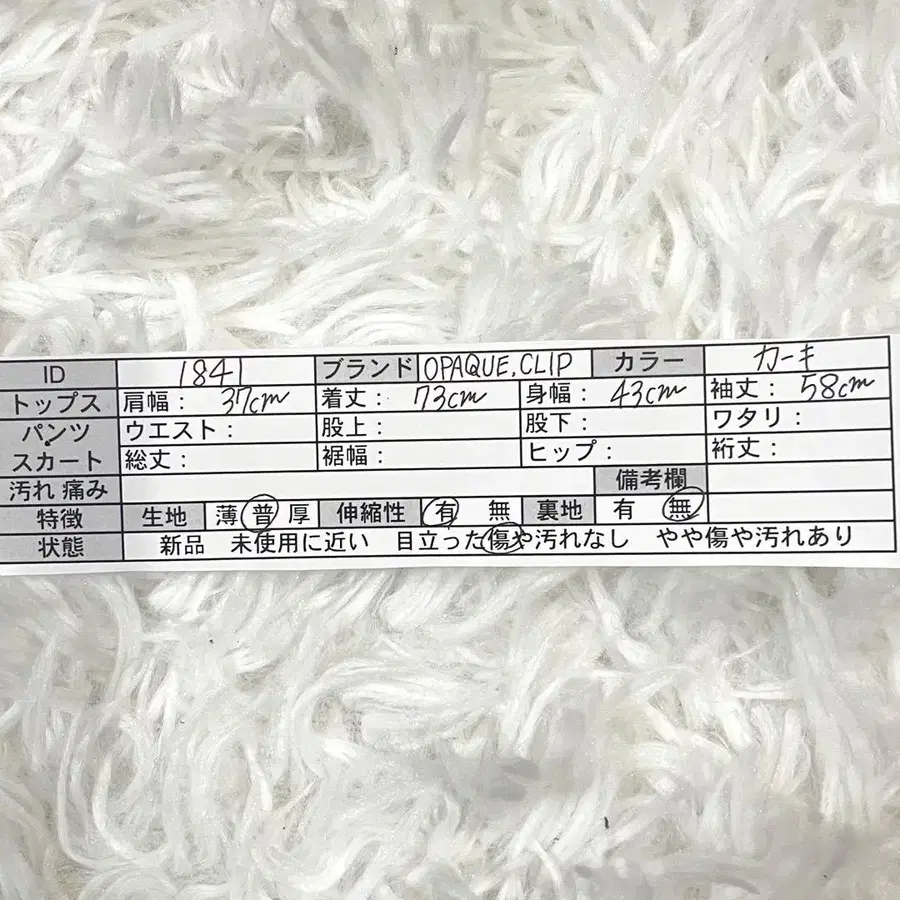 ID 1841 ブランド OPAQUE.CLIP カラー カーキ
トップス 肩幅： 37cm 着丈： 73cm 身幅： 43cm 袖丈： 58cm
パンツ ウエスト： 股上： 股下： ワタリ：
・
スカート 総丈： 裾幅： ヒップ： 裄丈：
汚れ 痛み 備考欄
特徴 生地 薄 普 厚 伸縮性 有 無 裏地 有 無
状態 新品 未使用に近い 目立った傷や汚れなし やや傷や汚れあり